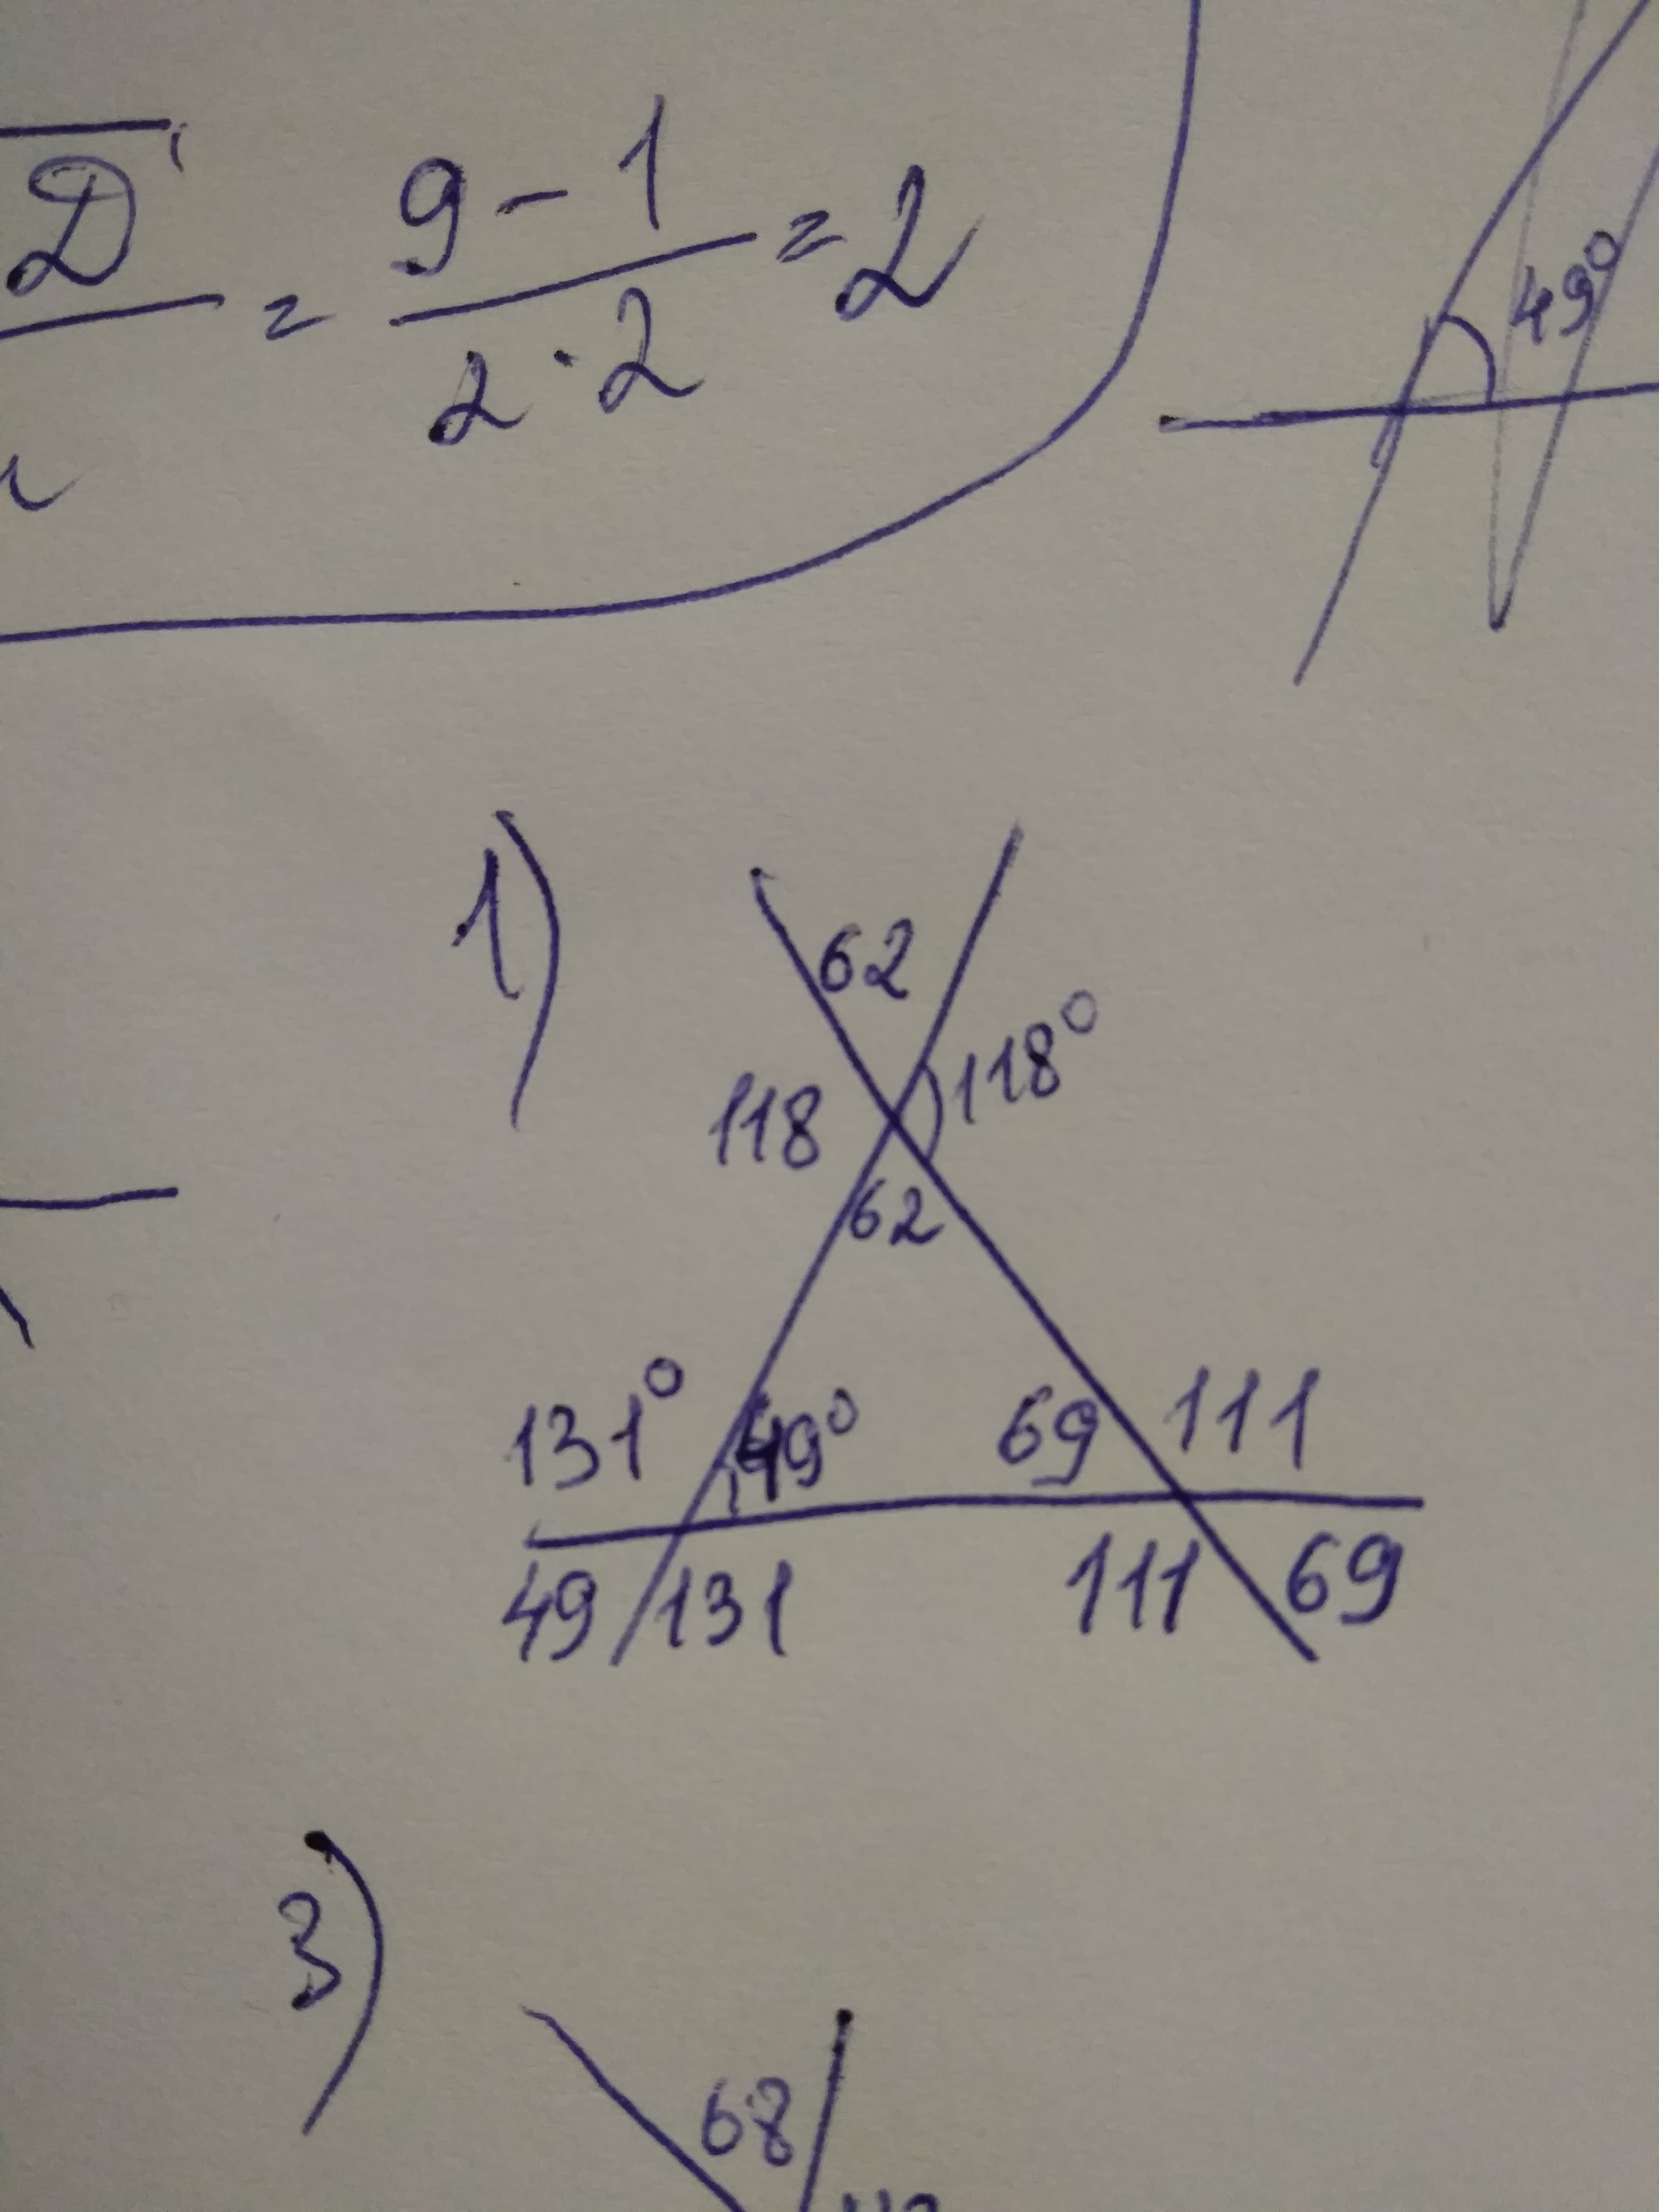 D = 9 - 1 = 2
2 · 2
49°
1)
62
118 118°
62
131° 49° 69 111
49 131 111 69
3)
68